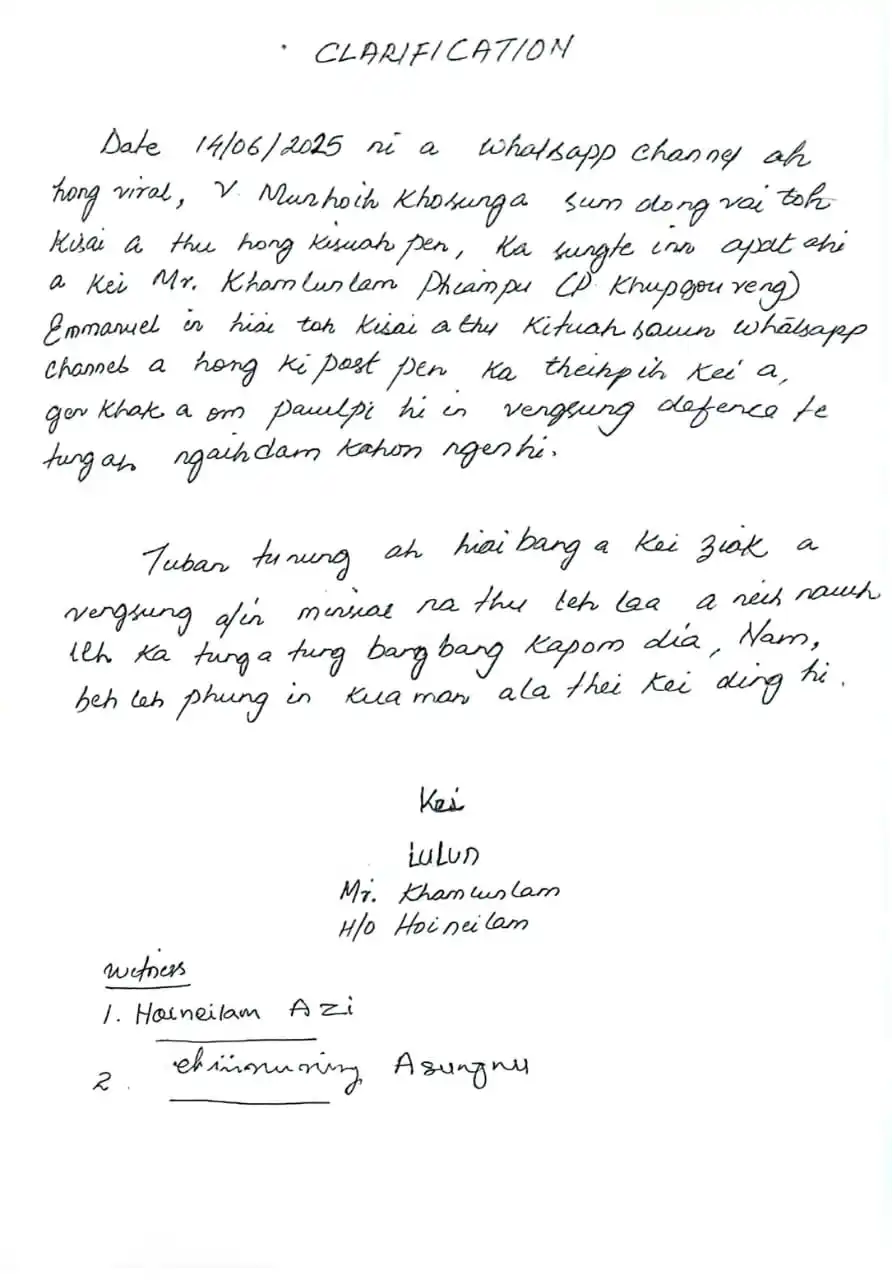 CLARIFICATION
Date 14/06/2025 ni a whatsapp channel ah
hong viral, V. Munhoih Khosunga sum dong vai toh
Kisai a thu hong kisuah pen, Ka sungte inn apat ahi
a Kei Mr. Khamlunlam Phiampu (P. Khupgou veng)
Emmanuel in hiai toh Kisai a thu Kituah sauin whatsapp
channel a hong ki post pen Ka theihpih Kei a,
gen khak a om pawlpi hi in vengsung defence te
tungah ngaihdam kahon ngen hi.
Tuban tunung ah hiai bang a Kei ziak a
vengsung a/in mensial na thu leh laa a neih nawh
leh Ka tung a tung bangbang Kapom dia, Nam,
beh leh phung in Kua man a la thei Kei ding hi.
Kei
LuLun
Mr. Khamlunlam
H/O Hoineilam
Witness
1. Hoineilam Azi
2. Asungnu